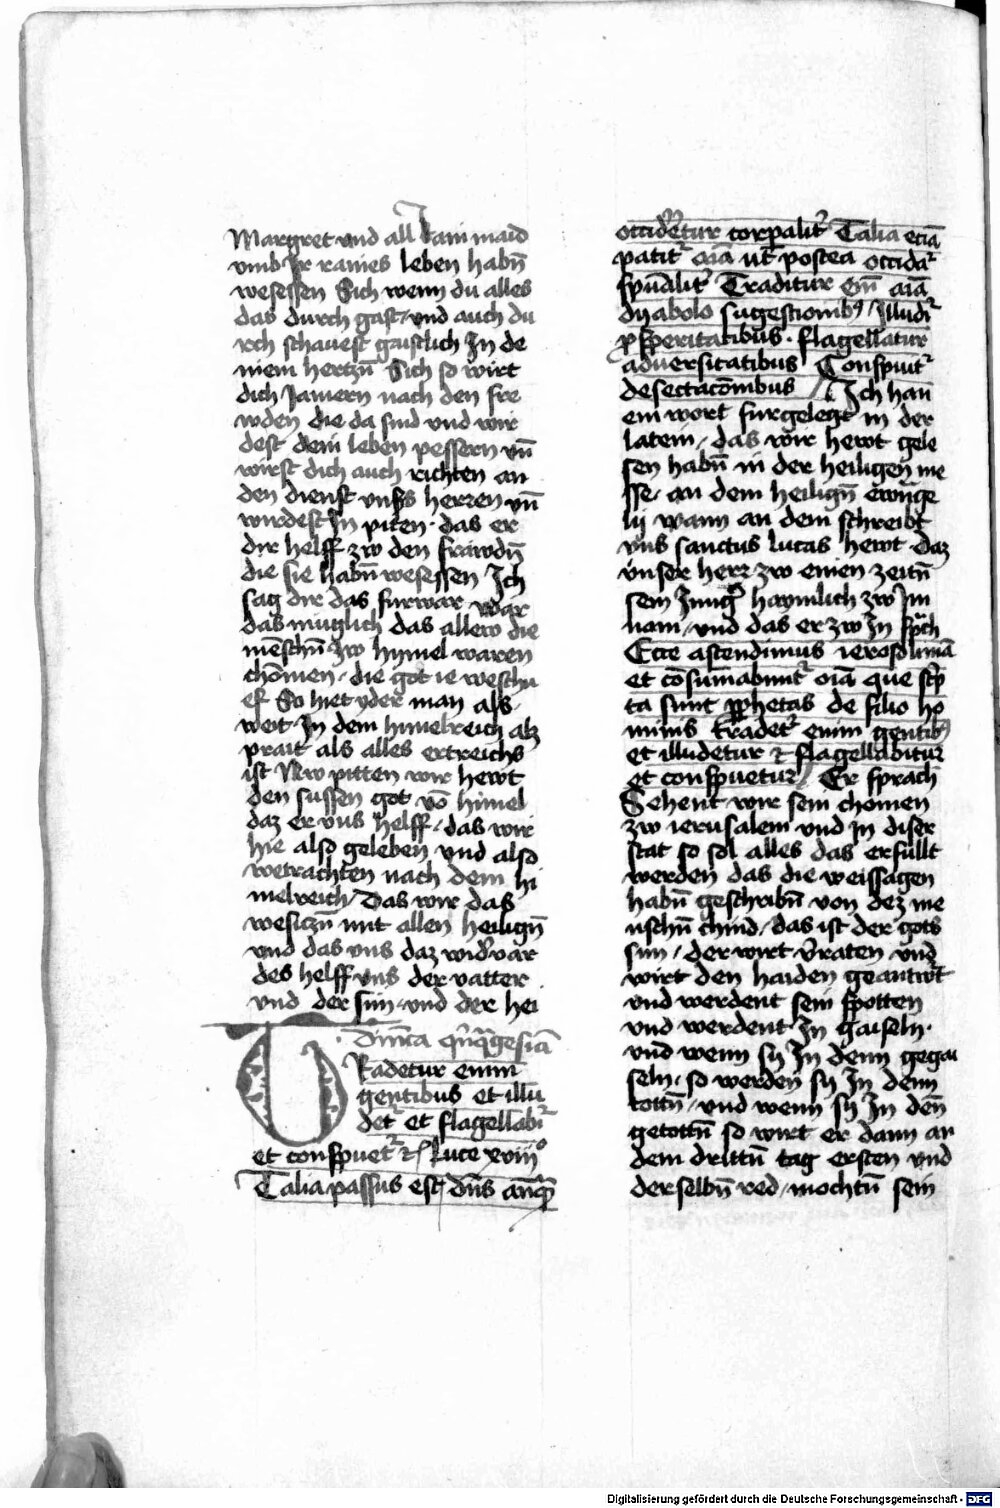 Margret und all kain maid
vmb ir raines leben habn̄
wesessen Sich wenn du alles
das durch gast / vnd auch du
rch schauest gaistlich In de
inem hertzn̄ Sich so wirt
dich Jamern nach den fre
wden die da sind vnd wir
dest dein leben pessern vn̄
wirst dich auch richten an
den dienst vnsers herren vn̄
wirdest In piten · das er
dir helff zw den frawdn̄
die sie habn̄ wesessen Ich
sag dir das furwar wār
das muglich das allew die
mēschn̄ zw hymel waren
chōmen / die got ie weschu
eff So hiet yder man als /
weit In dem himelreich alz
prait als alles ertreichs
ist Nw pitten wir hewt
den sussen got vō himel
daz er vns helff / das wir
hie also geleben vnd also
wetrachten nach dem hi
melreich / Das wir das
wesiczn̄ mit allen heilign̄
vnd das vns daz widervar
des helff vns der vatter
vnd der sun · vnd der hei
Dmīca qn̄qagesiā
Tradetur enim
gentibus et illu
det᷑ et flagellabi᷑
et conspuet᷑ ⁊c̄ Luce xviijº
Talia passus est dn̄s anteq̄ꝫ
occideretur corporalit᷑ Talia eciā
patit᷑ aīa ut postea occidat᷑
spūalit᷑ Traditur em̄ aīa
dyabolo sugestionibꝰ / Illudit᷑
prosperitatibus · flagellatur
adversitatibus Conspuit᷑
desectacōnibus // Ich han
ein wort furgelegt in der
latein / das wir hewt gele
sen habn̄ in der heiligen me
sse / an dem heilign̄ ewange
lij wann an dem schreibt
vns sanctus lucas hewt daz
vnser herr zw einen zeitn̄
sein Junger haymlich zw im
nam / vnd das er zw In sprach
Ecce ascendimus ierosolimā
et cōsumabunt᷑ oīa que scrip
ta sunt per prophetas de filio ho
minis tradet᷑ enim gentibꝰ
et illudetur ⁊ flagellabitur
et conspuetur // Er sprach
Sehent wir sein chomen
zw ierusalem vnd in diser
stat so sol alles das erfullt
werden das die weissagen
habn̄ geschribn̄ von dez me
nschn̄ chind / das ist der gots
sun / der wirt v᷑raten vnd
wirt den haiden geantw᷑t
vnd werdent sein spotten
vnd werdent In gaiseln ·
vnd wenn sy In denn gegai
seln / so werden sy In denn
tottn̄ / vnd wenn sy In den̄
getottn̄ so wirt er dann an
dem drittn̄ tag ersten vnd
derselbn̄ red / mochtn̄ sein
Digitalisierung gefördert durch die Deutsche Forschungsgemeinschaft - DFG